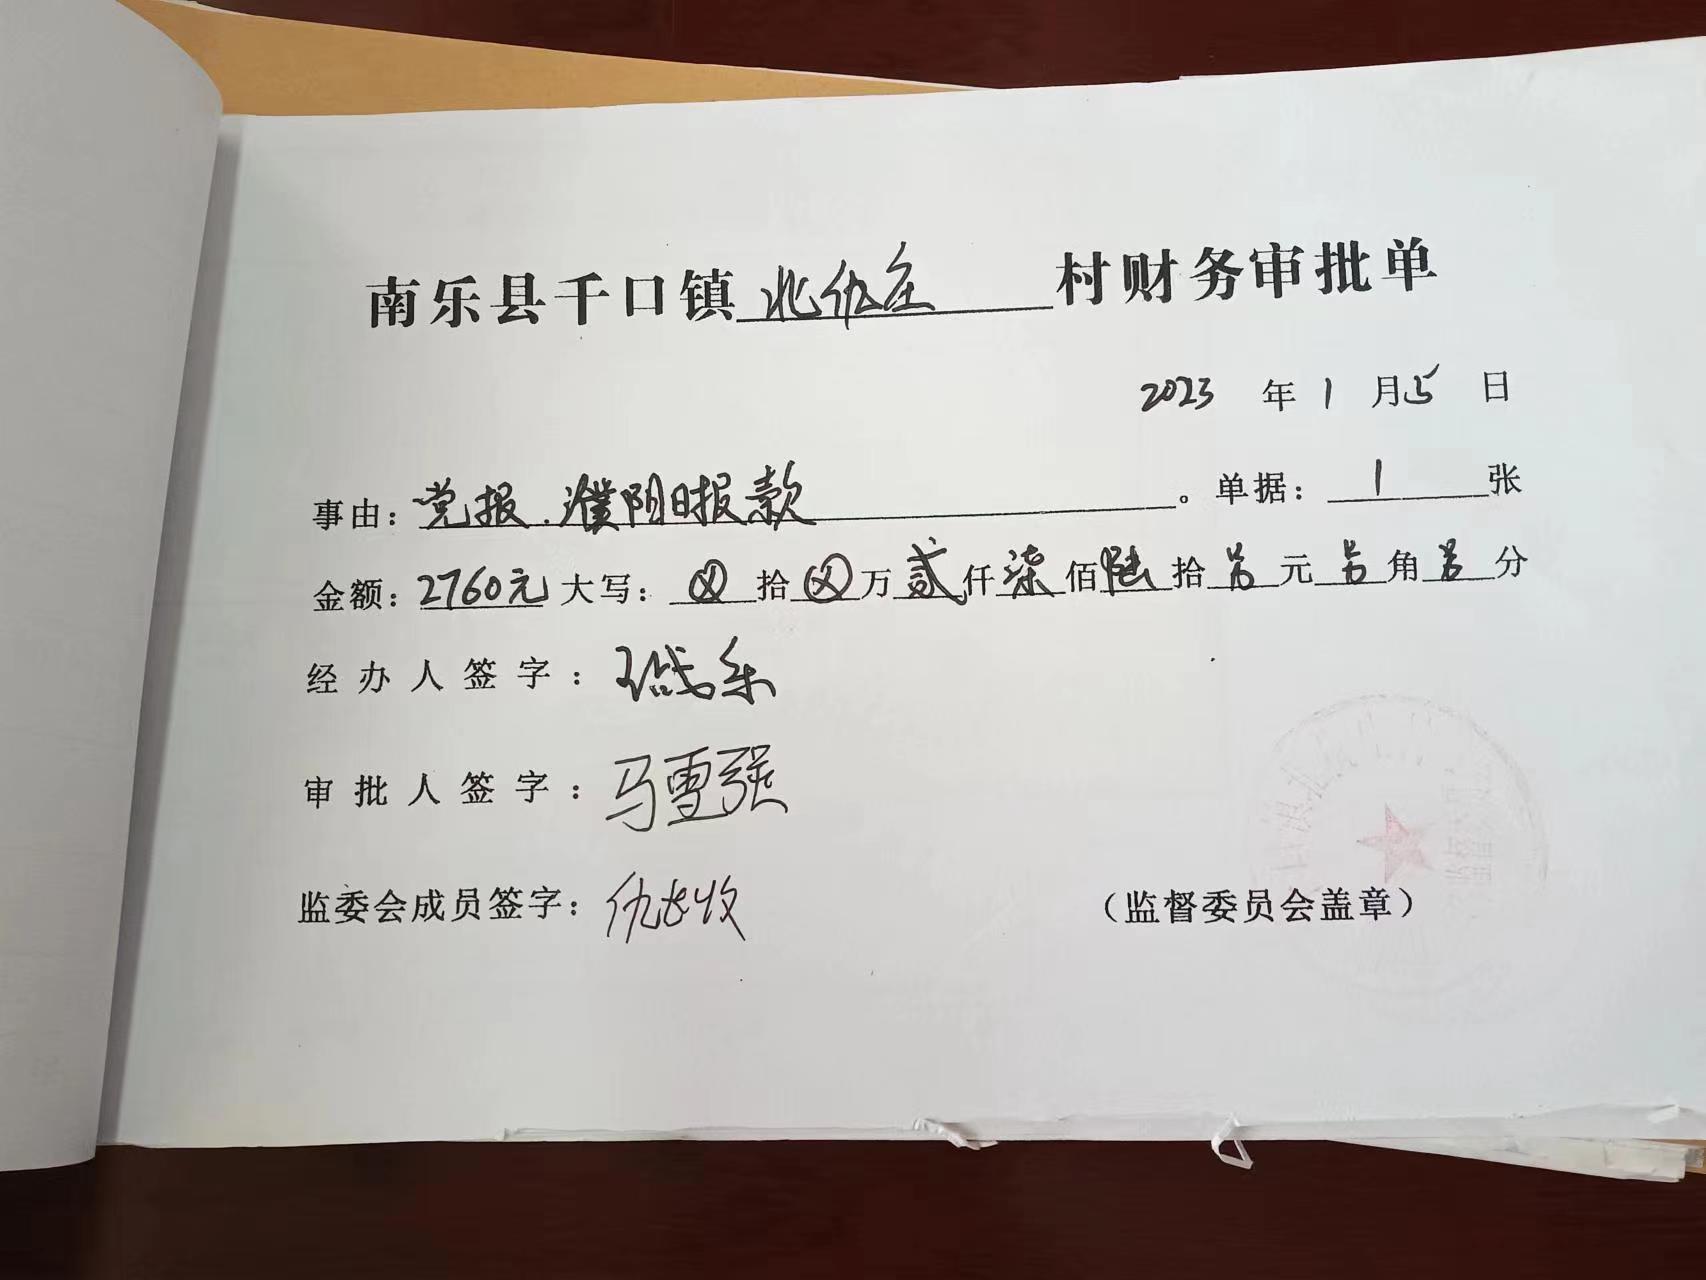 南乐县千口镇北仇庄村财务审批单
2023 年 1 月 5 日
事由：党报.濮阳日报款。单据：1张
金额：2760元大写：⊗拾⊗万贰仟柒佰陆拾另元另角另分
经办人签字：
审批人签字：马雪强
监委会成员签字：仇
（监督委员会盖章）